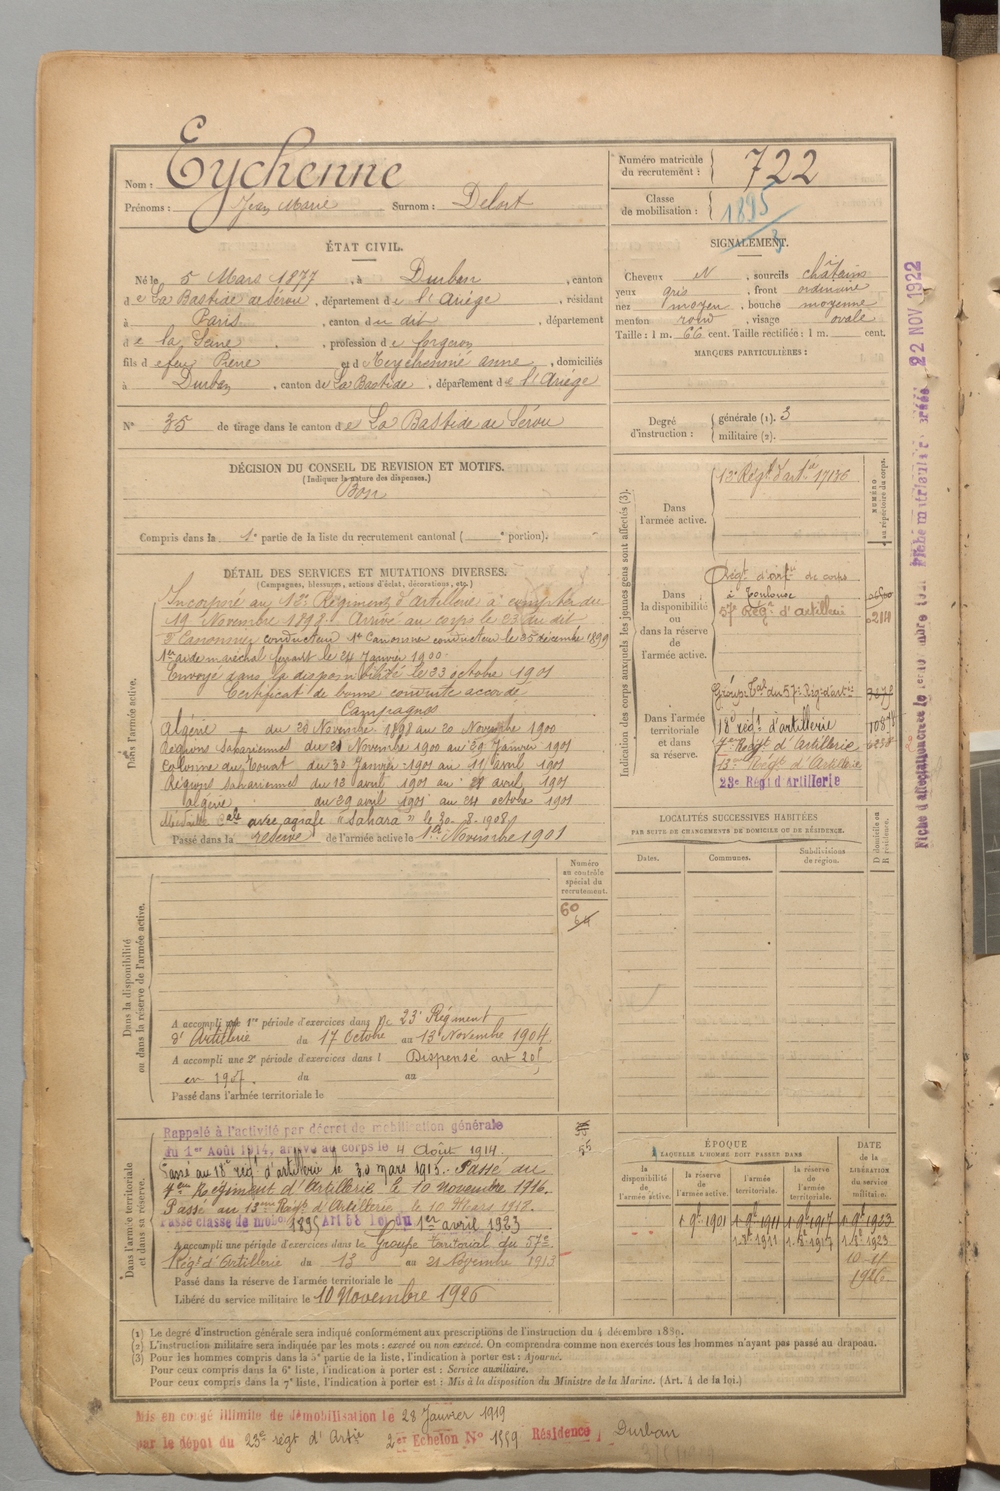 Nom : Eychenne
Prénoms : Jean Marie Surnom : Delort
Numéro matricule du recrutement : 722
Classe de mobilisation : 1895
3
ÉTAT CIVIL.
Né le 5 Mars 1877, à Durban, canton
de La Bastide de Sérou, département de l'Ariège, résidant
à Paris, canton du dit, département
de la Seine, profession de forgeron
fils de feu Pierre et d'Eychenné Anne, domiciliés
à Durban, canton de La Bastide, département de l'Ariège
N° 35 de tirage dans le canton de La Bastide de Sérou
SIGNALEMENT.
Cheveux N, sourcils châtains
yeux gris, front ordinaire
nez moyen, bouche moyenne
menton rond, visage ovale
Taille : 1 m. 66 cent. Taille rectifiée : 1 m. cent.
MARQUES PARTICULIÈRES :
Degré d'instruction : générale (1). 3
militaire (2).
DÉCISION DU CONSEIL DE REVISION ET MOTIFS.
(Indiquer la nature des dispenses.)
Bon
Compris dans la 1e partie de la liste du recrutement cantonal ( e portion).
DÉTAIL DES SERVICES ET MUTATIONS DIVERSES.
(Campagnes, blessures, actions d'éclat, décorations, etc.)
Dans l'armée active.
Incorporé au 13e Régiment d'Artillerie à compter du
19 Novembre 1898. Arrivé au corps le 23 du dit
2e Canonnier conducteur 1er Canonnier conducteur le 25 décembre 1899
1er aide maréchal ferrant le 24 Janvier 1900.
Envoyé dans la disponibilité le 23 octobre 1901
Certificat de bonne conduite accordé
Campagnes
Algérie du 20 Novembre 1898 au 20 Novembre 1900
Régions Sahariennes du 21 Novembre 1900 au 29 Janvier 1901
Colonne du Touat du 30 Janvier 1901 au 11 avril 1901
Régions sahariennes du 12 avril 1901 au 28 avril 1901
Algérie du 29 avril 1901 au 24 octobre 1901
Médaille Cale avec agrafe "Sahara" le 30-8-1908
Passé dans la réserve de l'armée active le 1er Novembre 1901
Indication des corps auxquels les jeunes gens sont affectés (3).
NUMÉRO au répertoire du corps.
Dans l'armée active.
13e Régt d'artie 17136
Dans la disponibilité ou dans la réserve de l'armée active.
Régt d'artie de corps
à Toulouse
57e Régt d'artillerie 6214
Dans l'armée territoriale et dans sa réserve.
Groupe Tal du 57e Régt d'artie
18e régt d'artillerie
7eme Régt d'Artillerie
13eme Régt d'Artillerie
23e Régt d'Artillerie
LOCALITÉS SUCCESSIVES HABITÉES
PAR SUITE DE CHANGEMENTS DE DOMICILE OU DE RÉSIDENCE.
Dates. Communes. Subdivisions de région. D domicile ou R résidence.
Fiche d'affectation créée le
Fiche matriculaire créée 22 NOV 1922
Numéro au contrôle spécial du recrutement.
60
64
Dans la disponibilité ou dans la réserve de l'armée active.
A accompli une 1re période d'exercices dans le 23e Régiment
d'Artillerie du 17 Octobre au 13 Novembre 1904
A accompli une 2e période d'exercices dans l Dispensé art 20
en 1907. du au
Passé dans l'armée territoriale le
Dans l'armée territoriale et dans sa réserve.
Rappelé à l'activité par décret de mobilisation générale
du 1er Août 1914, arrivé au corps le 4 Août 1914.
Passé au 18e régt d'artillerie le 30 mars 1915. Passé au
7eme Régiment d'Artillerie le 10 novembre 1916.
Passé au 13eme Régt d'Artillerie le 10 Mars 1918.
Passé classe de mob. 1895 Art 58 Loi du 1er avril 1923
A accompli une période d'exercices dans le Groupe territorial du 57e
Régt d'Artillerie du 13 au 21 Novembre 1913
Passé dans la réserve de l'armée territoriale le
Libéré du service militaire le 10 Novembre 1926
55
ÉPOQUE À LAQUELLE L'HOMME DOIT PASSER DANS
la disponibilité de l'armée active. la réserve de l'armée active. l'armée territoriale. la réserve de l'armée territoriale.
DATE de la LIBÉRATION du service militaire.
1 9e 1901 1 9e 1911 1 9e 1917 1 9e 1923
1 8e 1911 1 8e 1917 1 8e 1923
10-11
1926
(1) Le degré d'instruction générale sera indiqué conformément aux prescriptions de l'instruction du 4 décembre 1889.
(2) L'instruction militaire sera indiquée par les mots : exercé ou non exercé. On comprendra comme non exercés tous les hommes n'ayant pas passé au drapeau.
(3) Pour les hommes compris dans la 5e partie de la liste, l'indication à porter est : Ajourné.
Pour ceux compris dans la 6e liste, l'indication à porter est : Service auxiliaire.
Pour ceux compris dans la 7e liste, l'indication à porter est : Mis à la disposition du Ministre de la Marine. (Art. 4 de la loi.)
Mis en congé illimité de démobilisation le 28 Janvier 1919
par le dépôt du 23e régt d'Artie 2e Echelon N° 1559 Résidence Durban